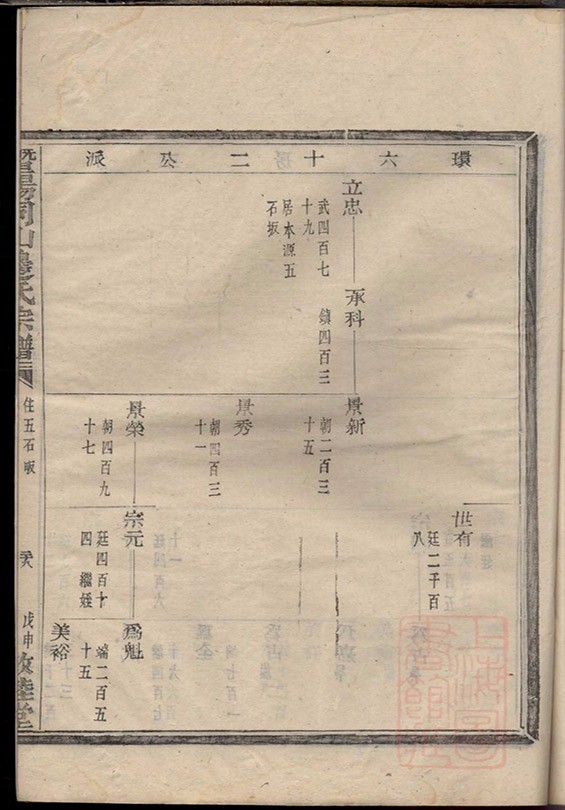 環六十二公派
立忠
武四百七
十九
居本源五
石坂
承科
鎮四百三
景新
朝二百三
十五
景秀
朝四百三
十一
景榮
朝四百九
十七
世有
廷二千百
八
宗元
廷四百十
四繼姪
爲魁
端二百五
十五
美裕
氏宗譜
住五石坂
戊申敦睦堂